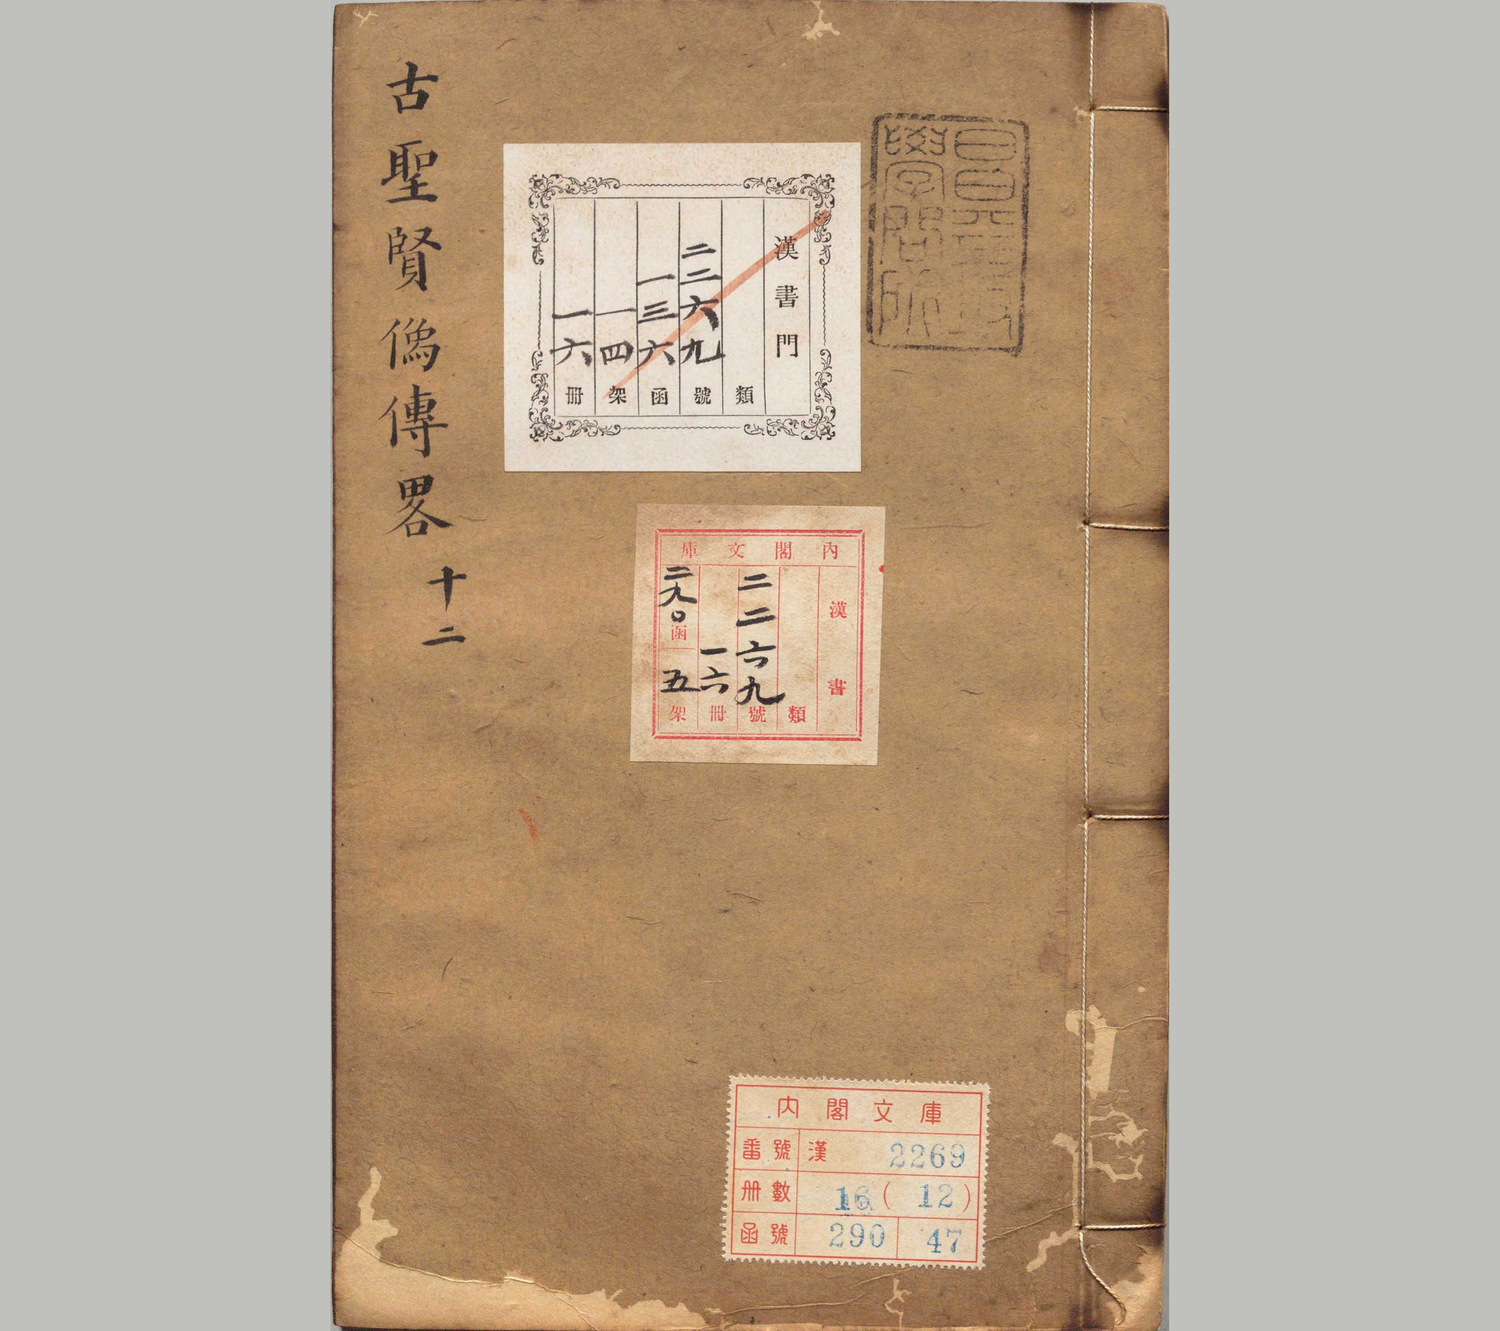 昌平坂
學問所
漢書門
類
二二六九號
一三六函
一四架
一六冊
古聖賢像傳畧 十二
內閣文庫
漢書
類
二二六九號
一六冊
二九〇函
五架
内閣文庫
番號 漢 2269
册數 16(12)
函號 290 47